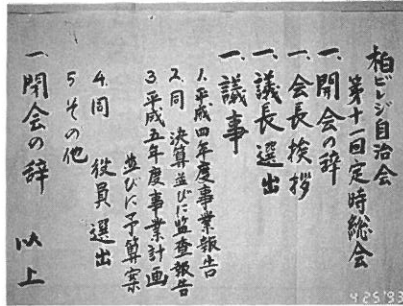 柏ビレジ自治会
第十一回定時総会
一、開会の辞
一、会長挨拶
一、議長選出
一、議事
1. 平成四年度事業報告
2. 同 決算並びに監査報告
3 平成五年度事業計画
並びに予算案
4. 同 役員選出
5 その他
一、閉会の辞
以上
4 25'93